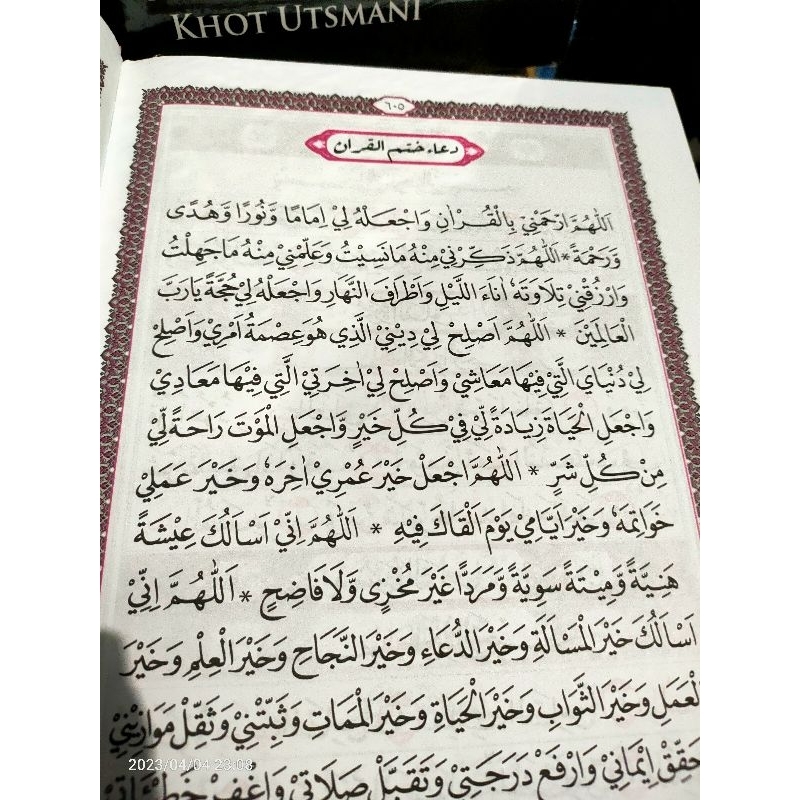 KHOT UTSMANI
٦٠٥
دعاء ختم القران
اَللّٰهُمَّ ارْحَمْنِيْ بِالْقُرْاٰنِ وَاجْعَلْهُ لِيْ اِمَامًا وَّنُوْرًا وَّهُدًى
وَّرَحْمَةً * اَللّٰهُمَّ ذَكِّرْنِيْ مِنْهُ مَا نَسِيْتُ وَعَلِّمْنِيْ مِنْهُ مَا جَهِلْتُ
وَارْزُقْنِيْ تِلَاوَتَهٗ اٰنَاءَ اللَّيْلِ وَاَطْرَافَ النَّهَارِ وَاجْعَلْهُ لِيْ حُجَّةً يَارَبَّ
الْعَالَمِيْنَ * اَللّٰهُمَّ اَصْلِحْ لِيْ دِيْنِيْ الَّذِيْ هُوَ عِصْمَةُ اَمْرِيْ وَاَصْلِحْ
لِيْ دُنْيَايَ الَّتِيْ فِيْهَا مَعَاشِيْ وَاَصْلِحْ لِيْ اٰخِرَتِيْ الَّتِيْ فِيْهَا مَعَادِيْ
وَاجْعَلِ الْحَيَاةَ زِيَادَةً لِّيْ فِيْ كُلِّ خَيْرٍ وَّاجْعَلِ الْمَوْتَ رَاحَةً لِّيْ
مِنْ كُلِّ شَرٍّ * اَللّٰهُمَّ اجْعَلْ خَيْرَ عُمْرِيْ اٰخِرَهٗ وَخَيْرَ عَمَلِيْ
خَوَاتِمَهٗ وَخَيْرَ اَيَّامِيْ يَوْمَ اَلْقَاكَ فِيْهِ * اَللّٰهُمَّ اِنِّيْ اَسْاَلُكَ عِيْشَةً
هَنِيَّةً وَّمِيْتَةً سَوِيَّةً وَّمَرَدًّا غَيْرَ مُخْزِى وَّلَا فَاضِحٍ * اَللّٰهُمَّ اِنِّيْ
اَسْاَلُكَ خَيْرَ الْمَسْاَلَةِ وَخَيْرَ الدُّعَاءِ وَخَيْرَ النَّجَاحِ وَخَيْرَ الْعِلْمِ وَخَيْرَ
الْعَمَلِ وَخَيْرَ الثَّوَابِ وَخَيْرَ الْحَيَاةِ وَخَيْرَ الْمَمَاتِ وَثَبِّتْنِيْ وَثَقِّلْ مَوَازِيْنِيْ
حَقِّقْ اِيْمَانِيْ وَارْفَعْ دَرَجَتِيْ وَتَقَبَّلْ صَلَاتِيْ وَاغْفِرْ
2023/04/04 23:08